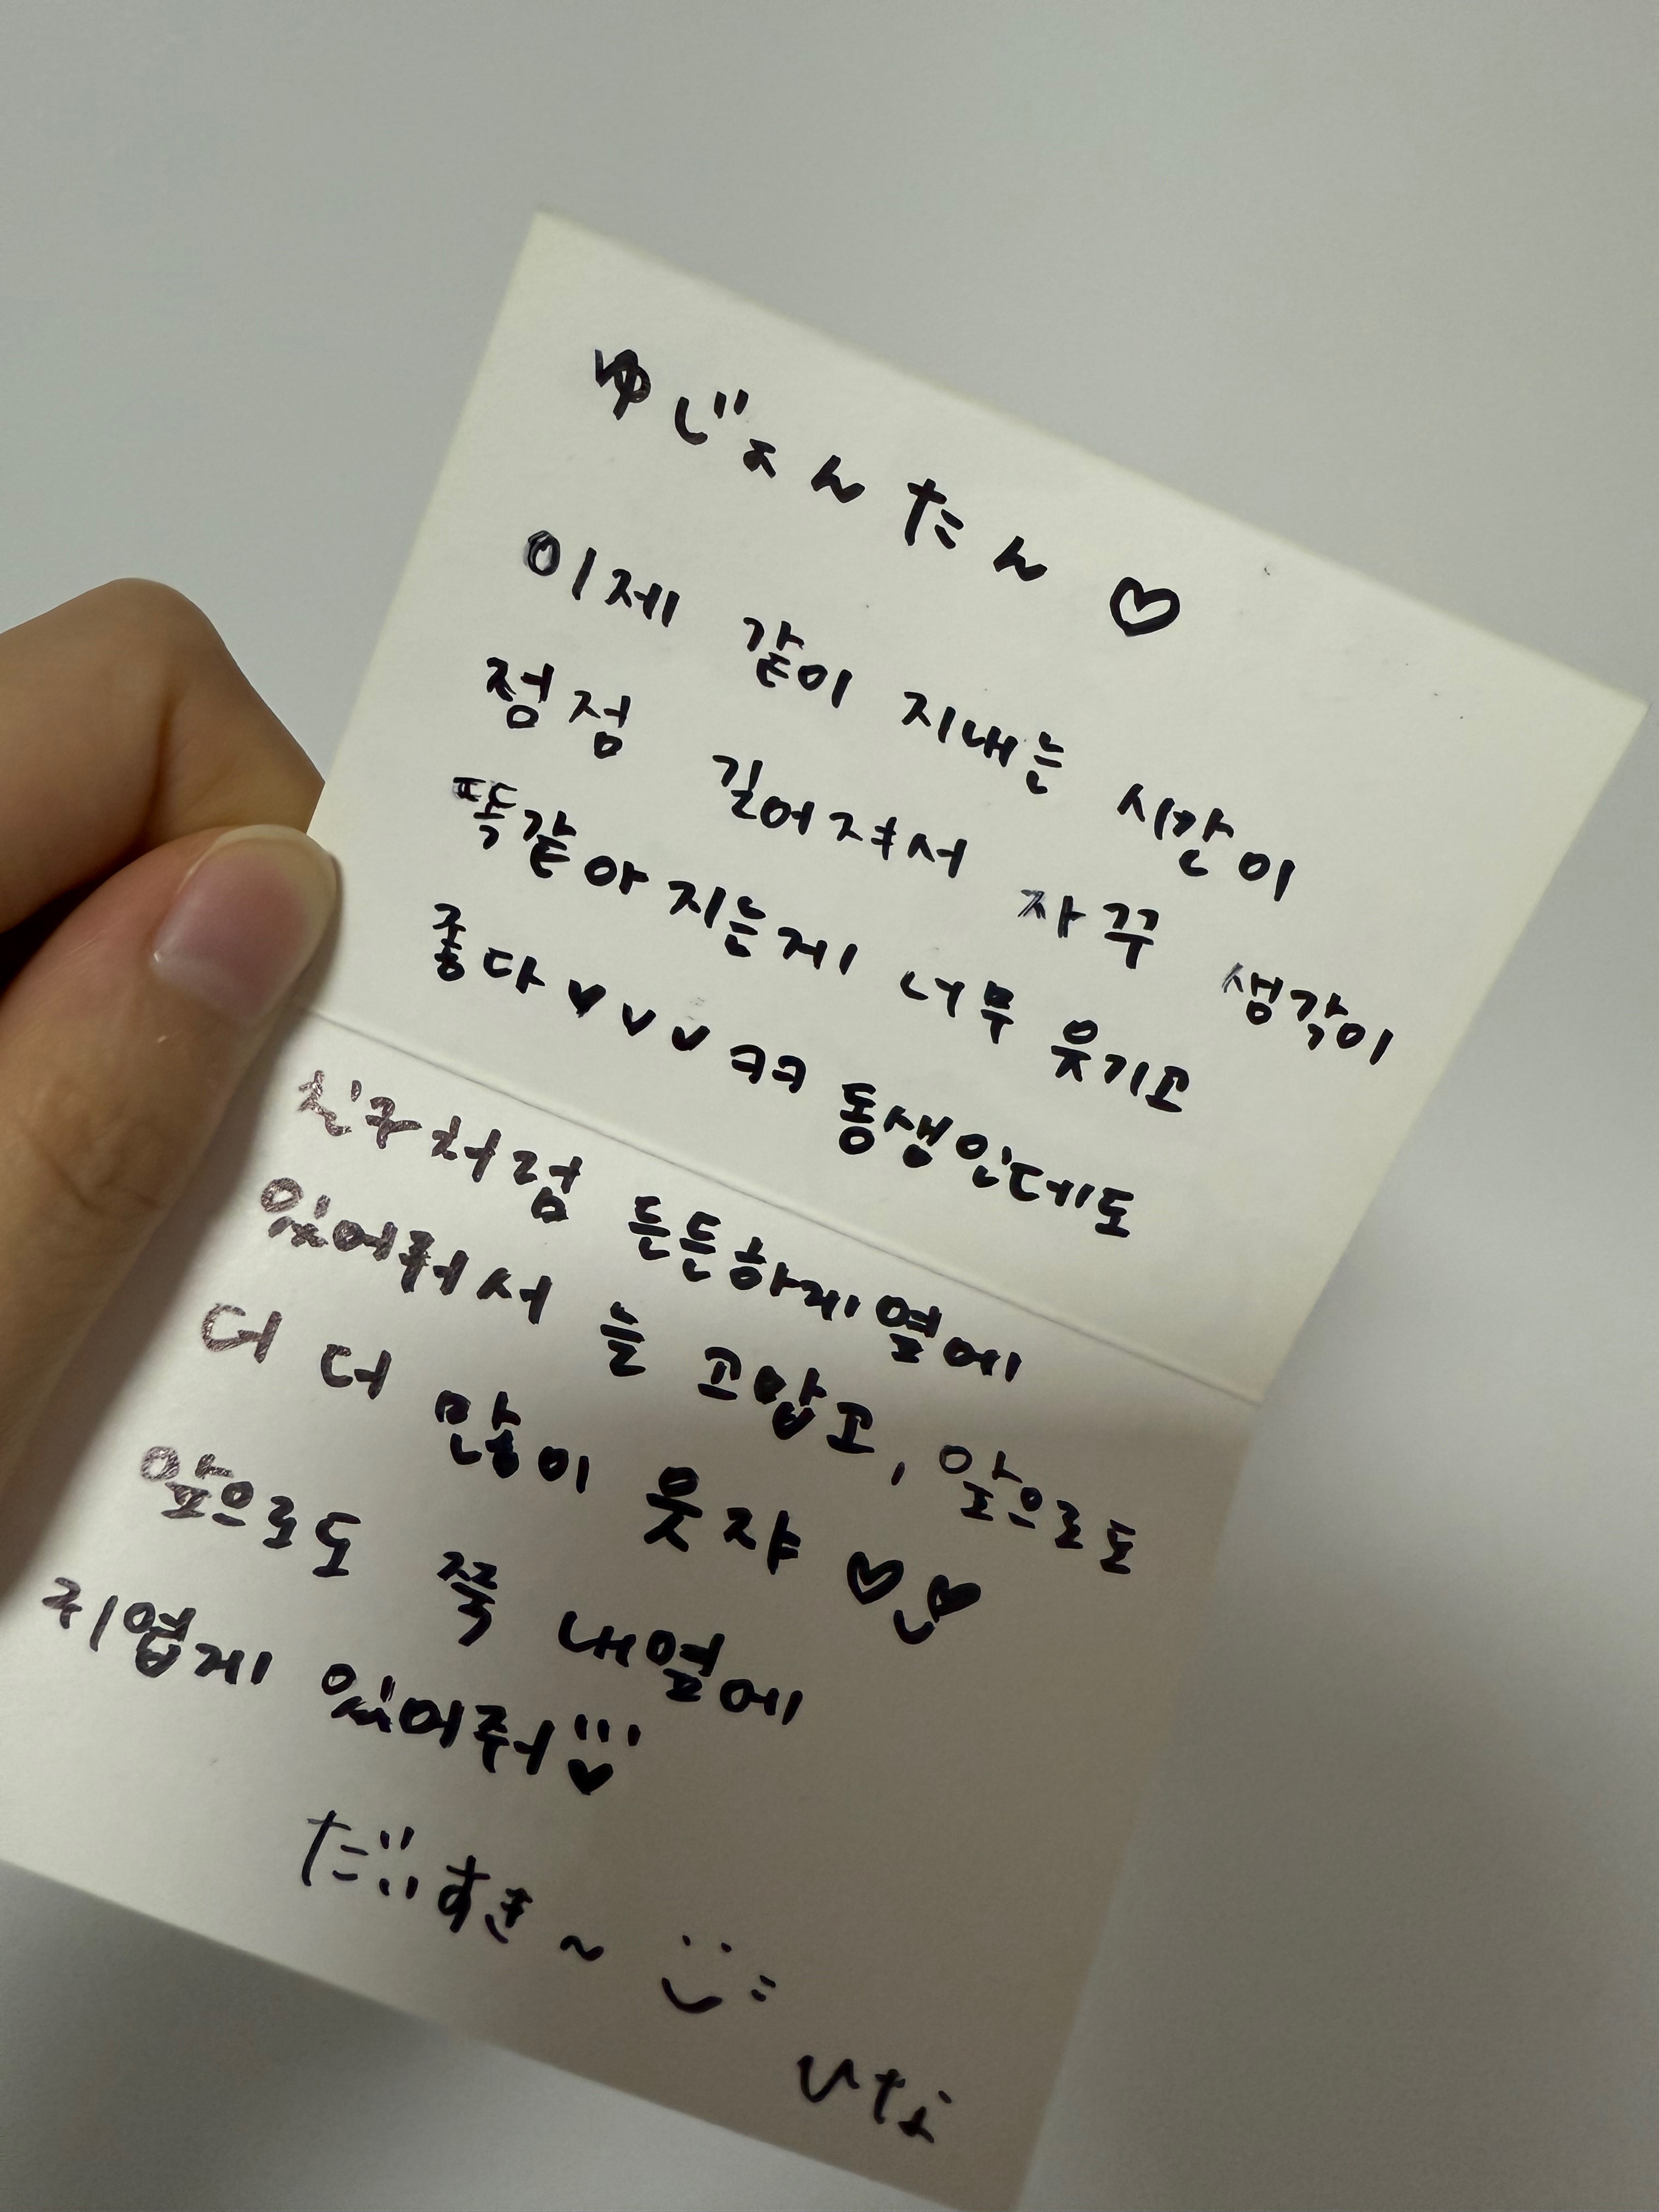 ゆじょんたん♡
이제 같이 지내는 시간이
점점 길어져서 자꾸 생각이
똑같아지는게 너무 웃기고
좋다♥♥♥ㅋㅋ 동생인데도
친구처럼 든든하게 옆에
있어줘서 늘 고맙고, 앞으로도
더 더 많이 웃쟈♡♥
앞으로도 쭉 내옆에
귀엽게 있어줘♥
だいすき~
ひな